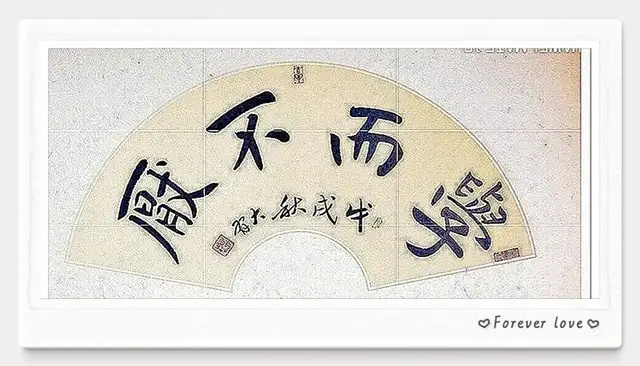 學而不厭
戌秋大
♡Forever love♡